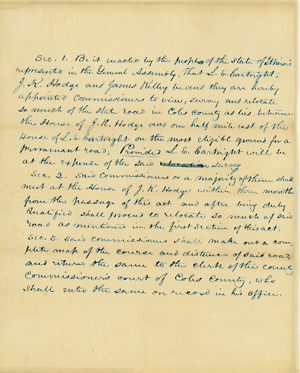 Sec. 1. Be it enacted by the people of the State of Illinois
represented in the General Assembly, That L. G. Cartright,
J. K. Hodge and James Kelley be and they are hereby
appointed Commissioners to view, survey and relocate
so much of the state road in Coles county as lies between
the House of J. K. Hodge and one half mile east of the
House of L. G. Cartright on the most eligible ground for a
Permanent road; Provided L. G. Cartright will be
at the expense of the said survey
Sec. 2. Said Commissioners or a majority of them shall
meet at the House of J. K. Hodge within three months
from the passage of this act and after being duly
Qualified shall proceed to relocate so much of said
road as mentioned in the first section of this act.
Sec. 3. Said commissioners shall make out a com
plete map of the course and distances of said road,
and return the same to the clerk of the county
Commissioner's court of Coles County, who
shall enter the same on record in his office.